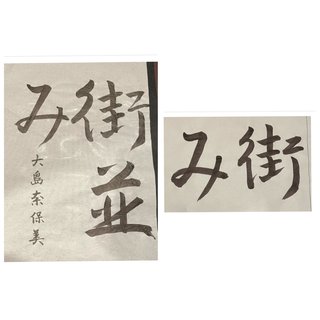 街並
み
大島奈保美
街
み